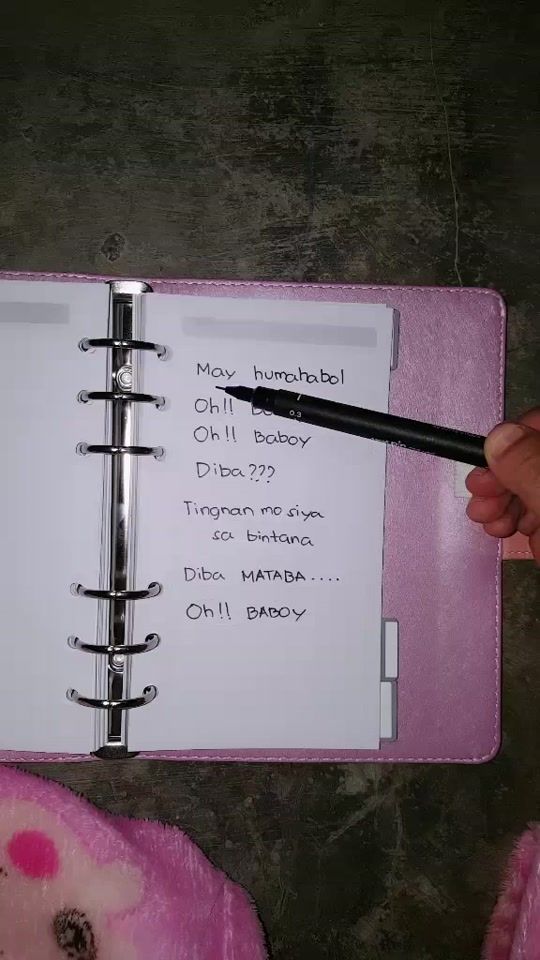 May humahabol
Oh!!
Oh!! Baboy
Diba???
Tingnan mo siya
sa bintana
Diba MATABA....
Oh!! BABOY
0.3